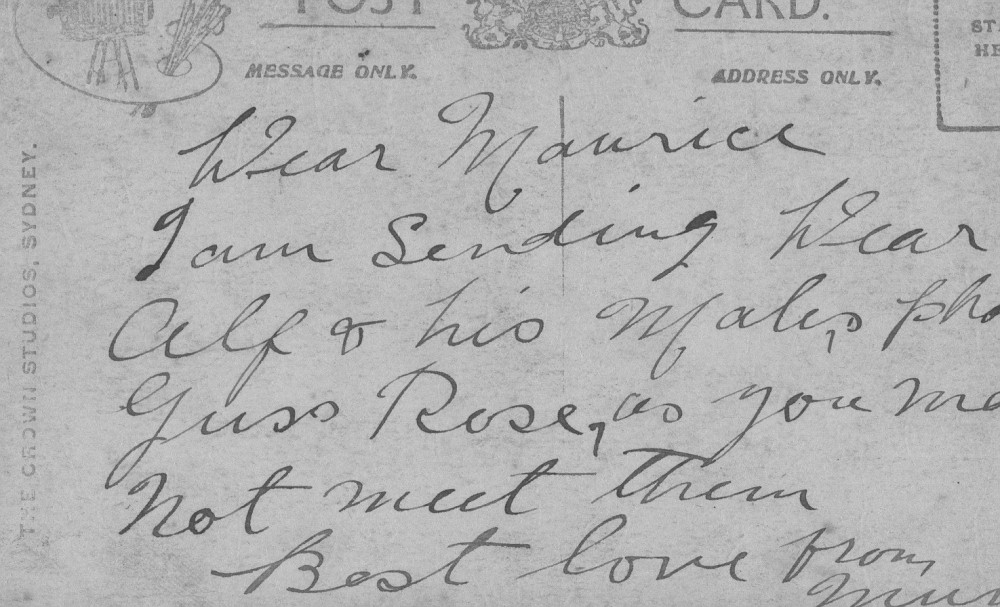 POST CARD.
MESSAGE ONLY. ADDRESS ONLY.
THE CROWN STUDIOS, SYDNEY.
Dear Maurice
I am Sending Dear
Alf & his Mate,s pho
Guss Rose, as you ma
Not meet them
Best love from,